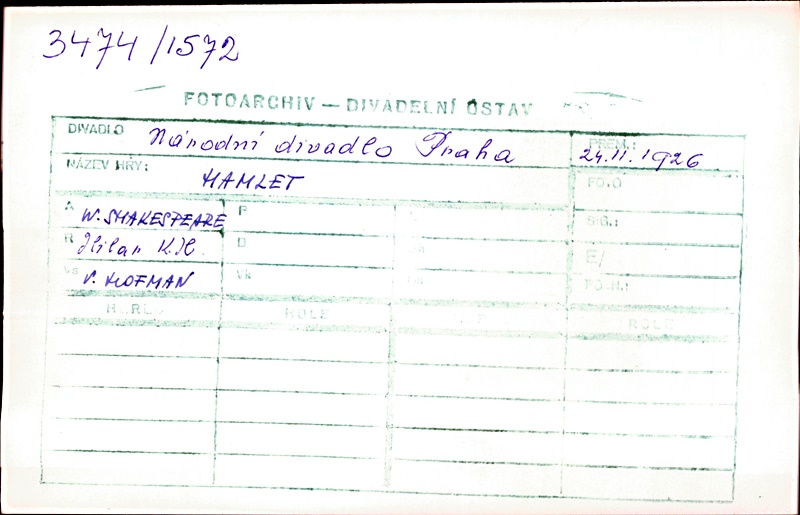 3474/1572
FOTOARCHIV — DIVADELNÍ ÚSTAV
DIVADLO Národní divadlo Praha PREM.: 24.11.1926
NÁZEV HRY: HAMLET FOTO
A W. SHAKESPEARE P SIG.:
R Hilar K.H. D E/
VS V. HOFMAN Vk PO.N.:
HEREC ROLE ROLE